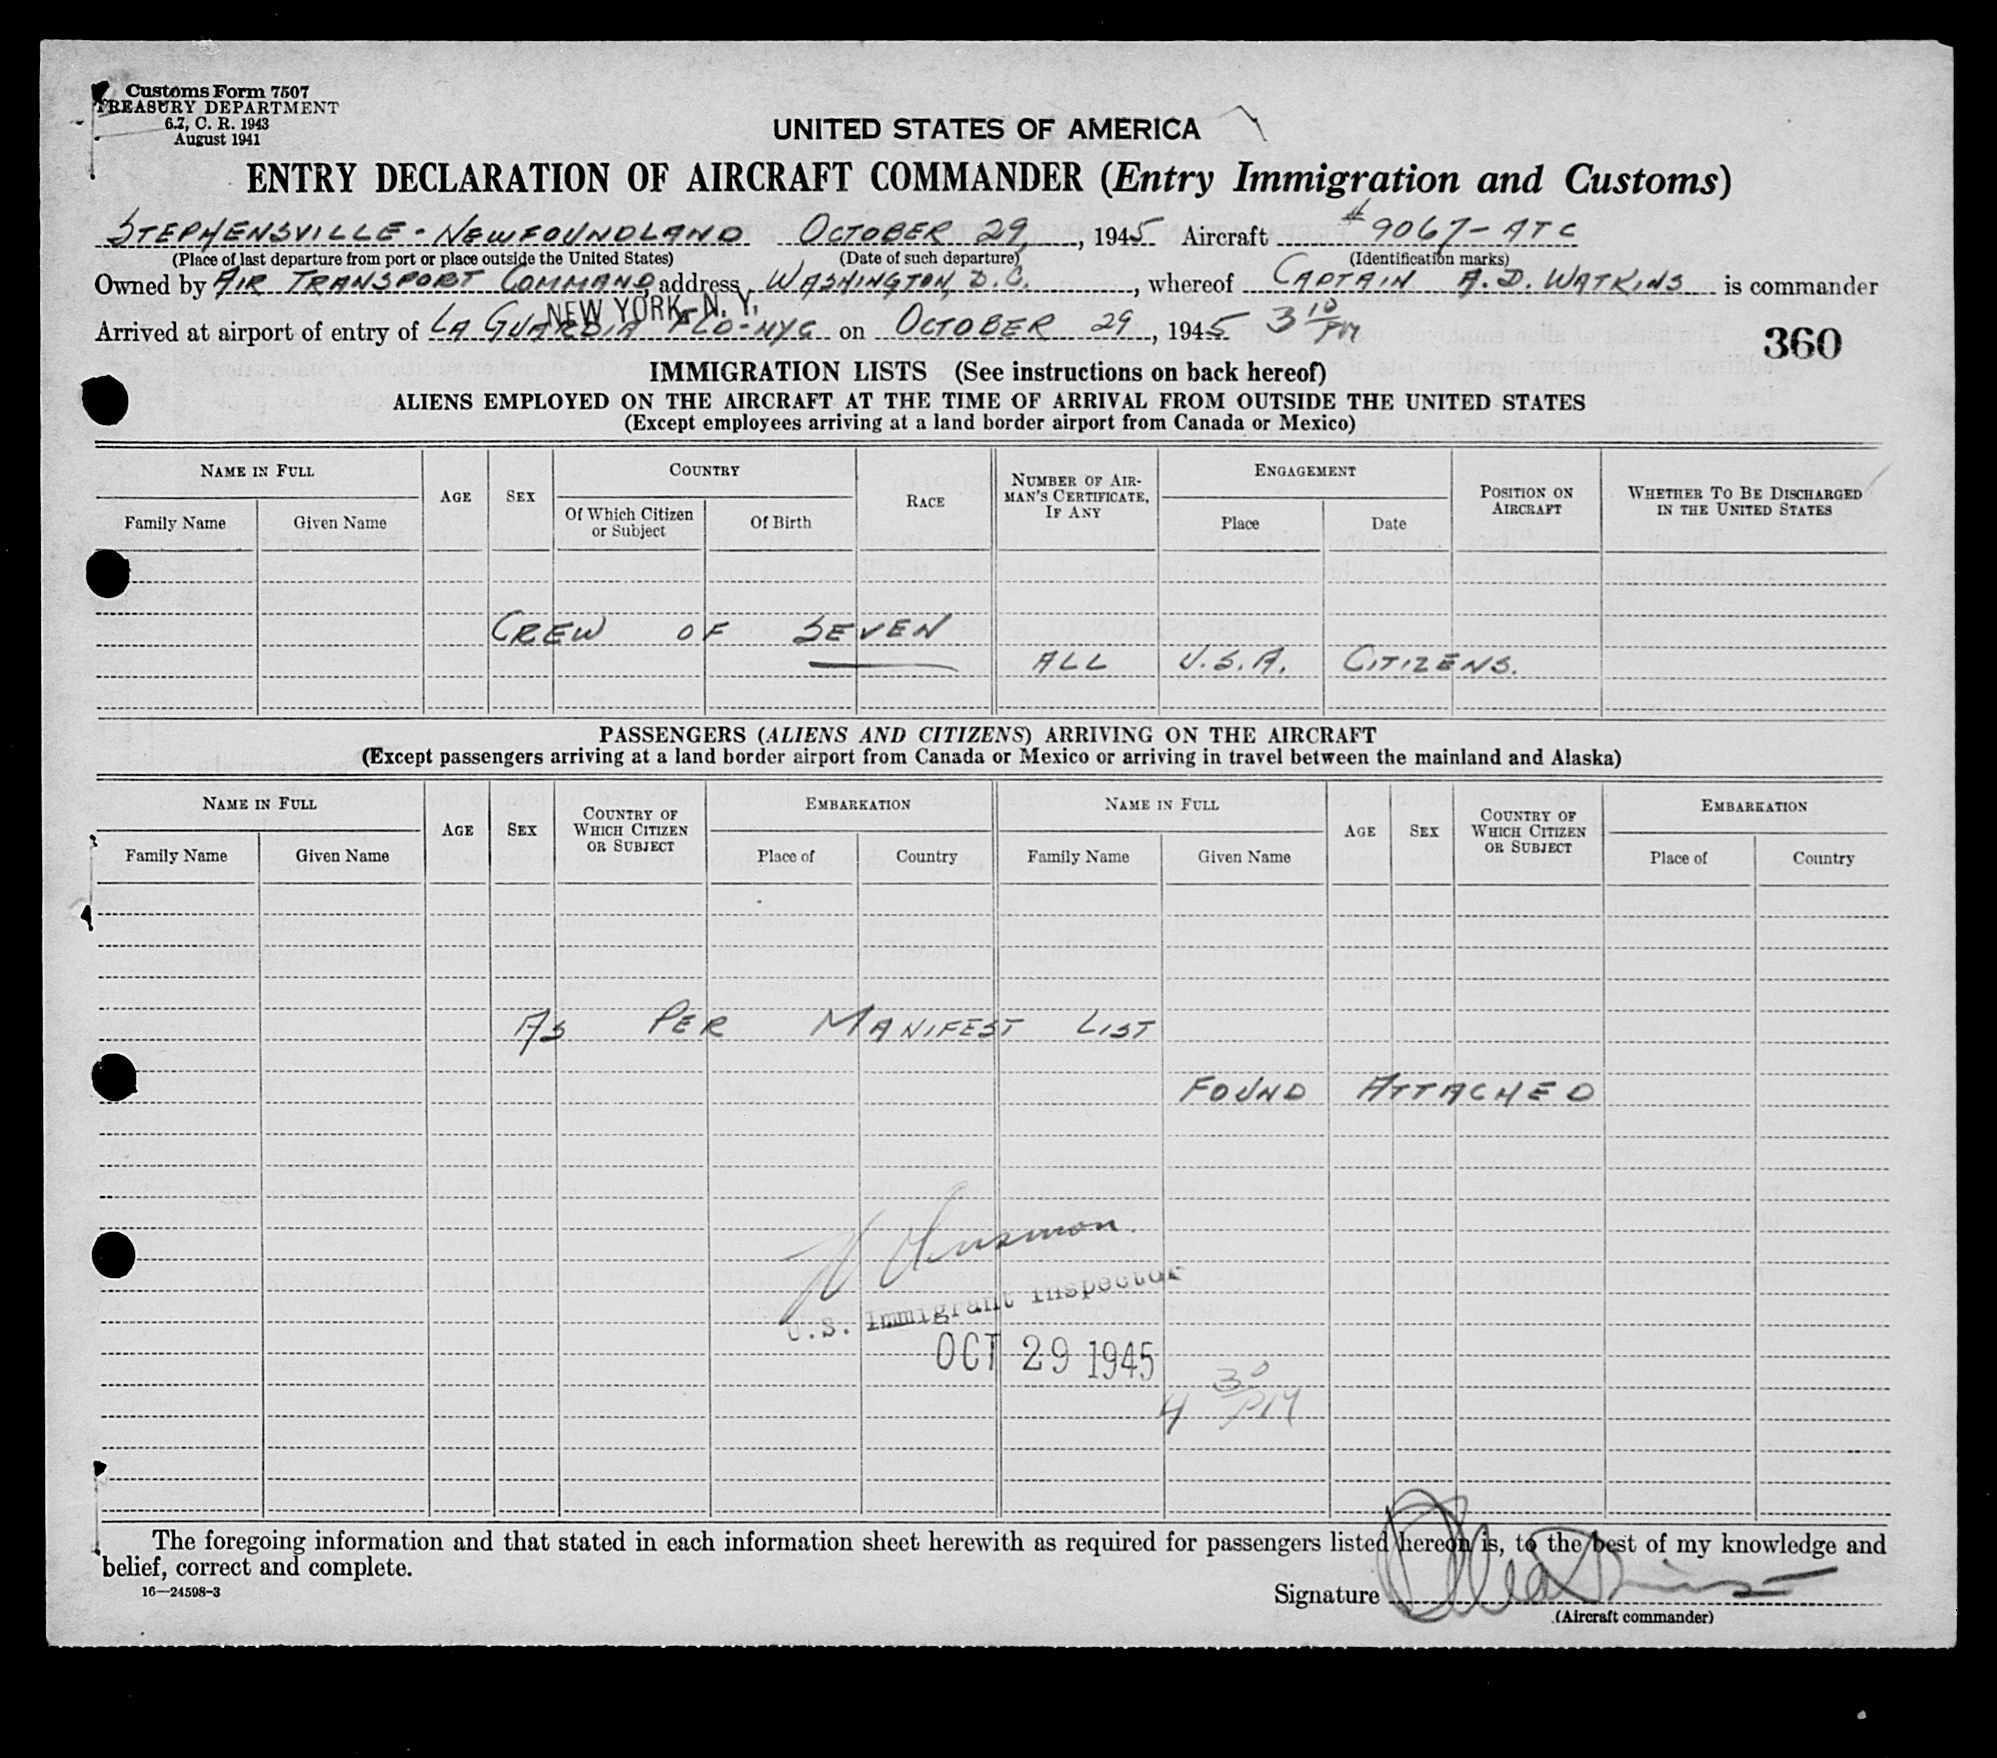 Customs Form 7507
TREASURY DEPARTMENT
6.7, C. R. 1943
August 1941
UNITED STATES OF AMERICA
ENTRY DECLARATION OF AIRCRAFT COMMANDER (Entry Immigration and Customs)
STEPHENSVILLE - NEWFOUNDLAND OCTOBER 29, 1945 Aircraft #9067-ATC
(Place of last departure from port or place outside the United States) (Date of such departure) (Identification marks)
Owned by AIR TRANSPORT COMMAND address WASHINGTON, D.C., whereof CAPTAIN A. D. WATKINS is commander
NEW YORK, N. Y.
Arrived at airport of entry of LA GUARDIA FLD-NYC on OCTOBER 29, 1945 3 10 PM
360
IMMIGRATION LISTS (See instructions on back hereof)
ALIENS EMPLOYED ON THE AIRCRAFT AT THE TIME OF ARRIVAL FROM OUTSIDE THE UNITED STATES
(Except employees arriving at a land border airport from Canada or Mexico)
NAME IN FULL
Family Name Given Name
AGE
SEX
COUNTRY
Of Which Citizen or Subject
Of Birth
RACE
NUMBER OF AIR-
MAN'S CERTIFICATE,
IF ANY
ENGAGEMENT
Place Date
POSITION ON
AIRCRAFT
WHETHER TO BE DISCHARGED
IN THE UNITED STATES
CREW OF SEVEN
ALL U.S.A. CITIZENS.
PASSENGERS (ALIENS AND CITIZENS) ARRIVING ON THE AIRCRAFT
(Except passengers arriving at a land border airport from Canada or Mexico or arriving in travel between the mainland and Alaska)
NAME IN FULL
Family Name Given Name
AGE
SEX
COUNTRY OF
WHICH CITIZEN
OR SUBJECT
EMBARKATION
Place of Country
NAME IN FULL
Family Name Given Name
AGE
SEX
COUNTRY OF
WHICH CITIZEN
OR SUBJECT
EMBARKATION
Place of Country
AS PER MANIFEST LIST
FOUND ATTACHED
U.S. Immigrant Inspector
OCT 29 1945
4 30 PM
The foregoing information and that stated in each information sheet herewith as required for passengers listed hereon is, to the best of my knowledge and
belief, correct and complete.
16—24598-3
Signature
(Aircraft commander)